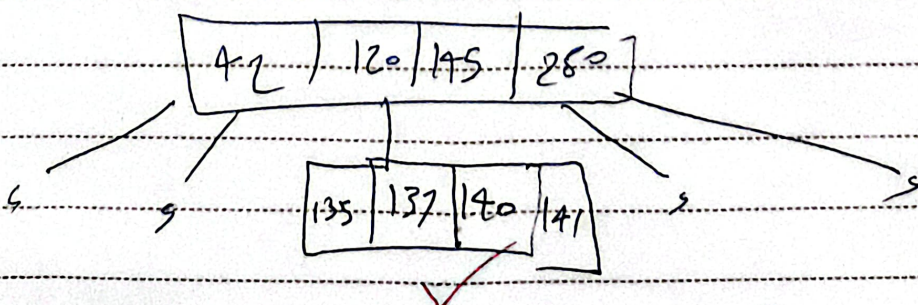 42 120 145 280
s s s s
135 137 140 141